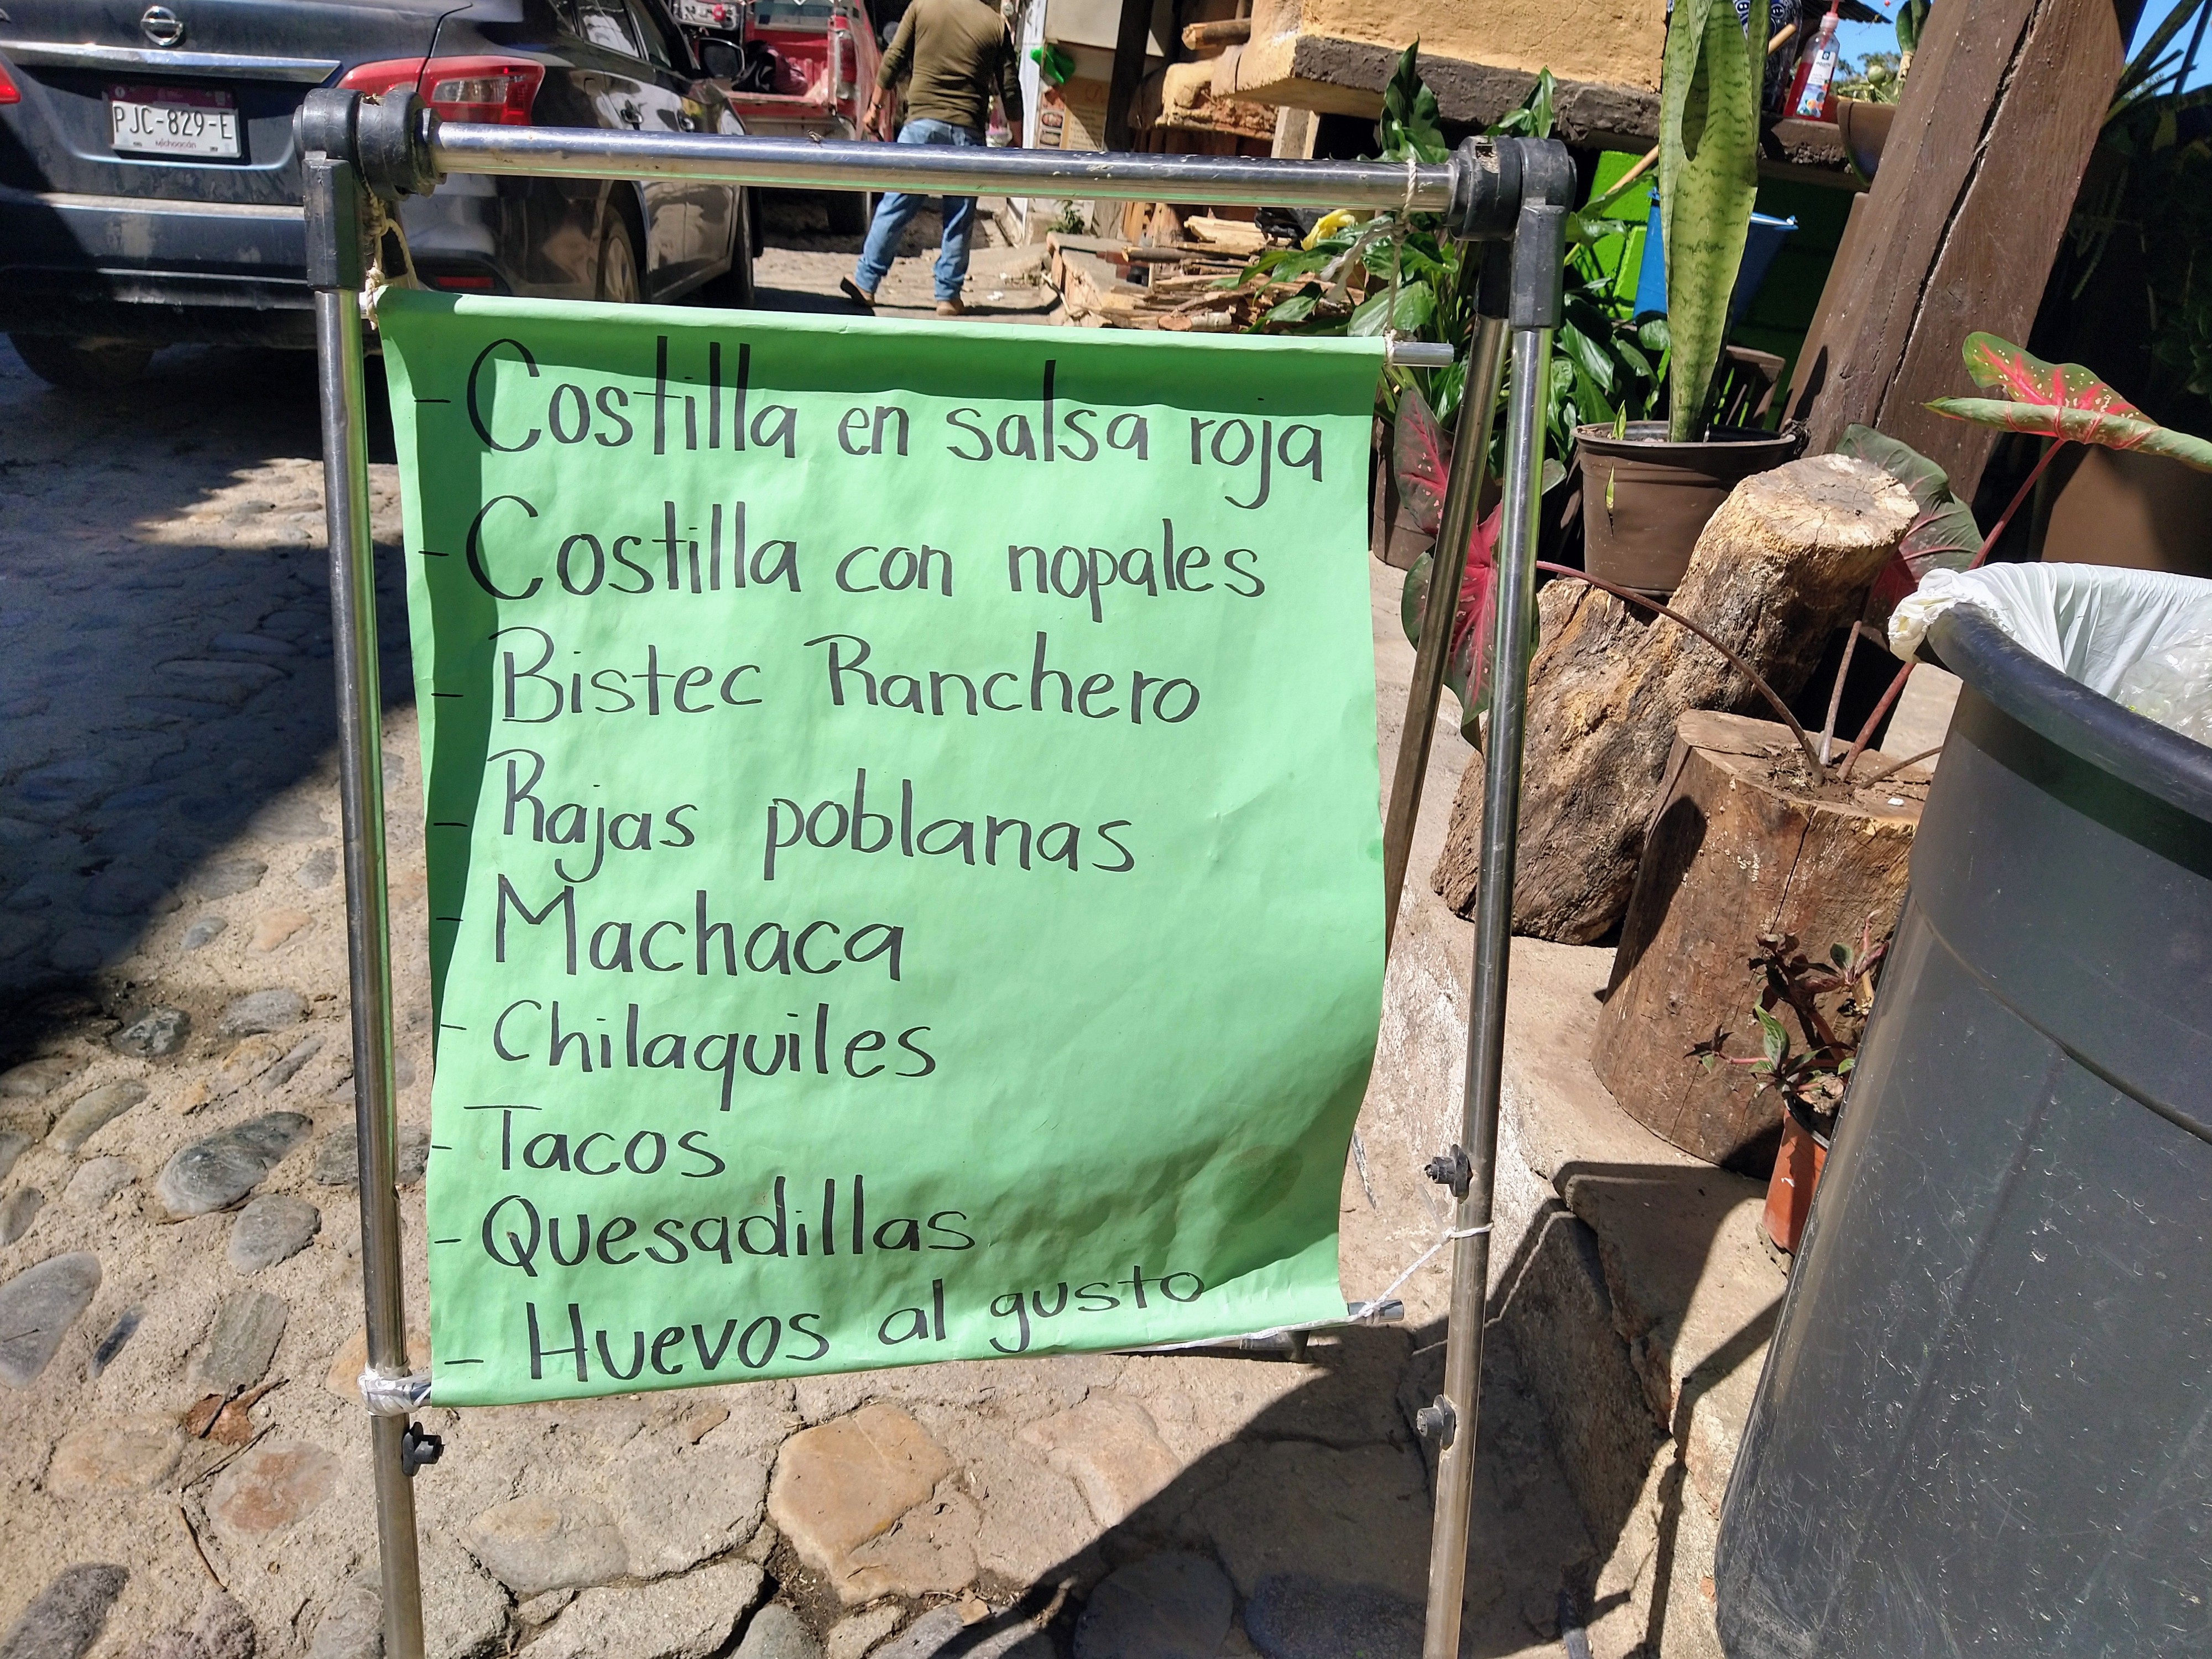 PJC-829-E
Michoacán
- Costilla en salsa roja
- Costilla con nopales
- Bistec Ranchero
- Rajas poblanas
- Machaca
- Chilaquiles
- Tacos
- Quesadillas
- Huevos al gusto